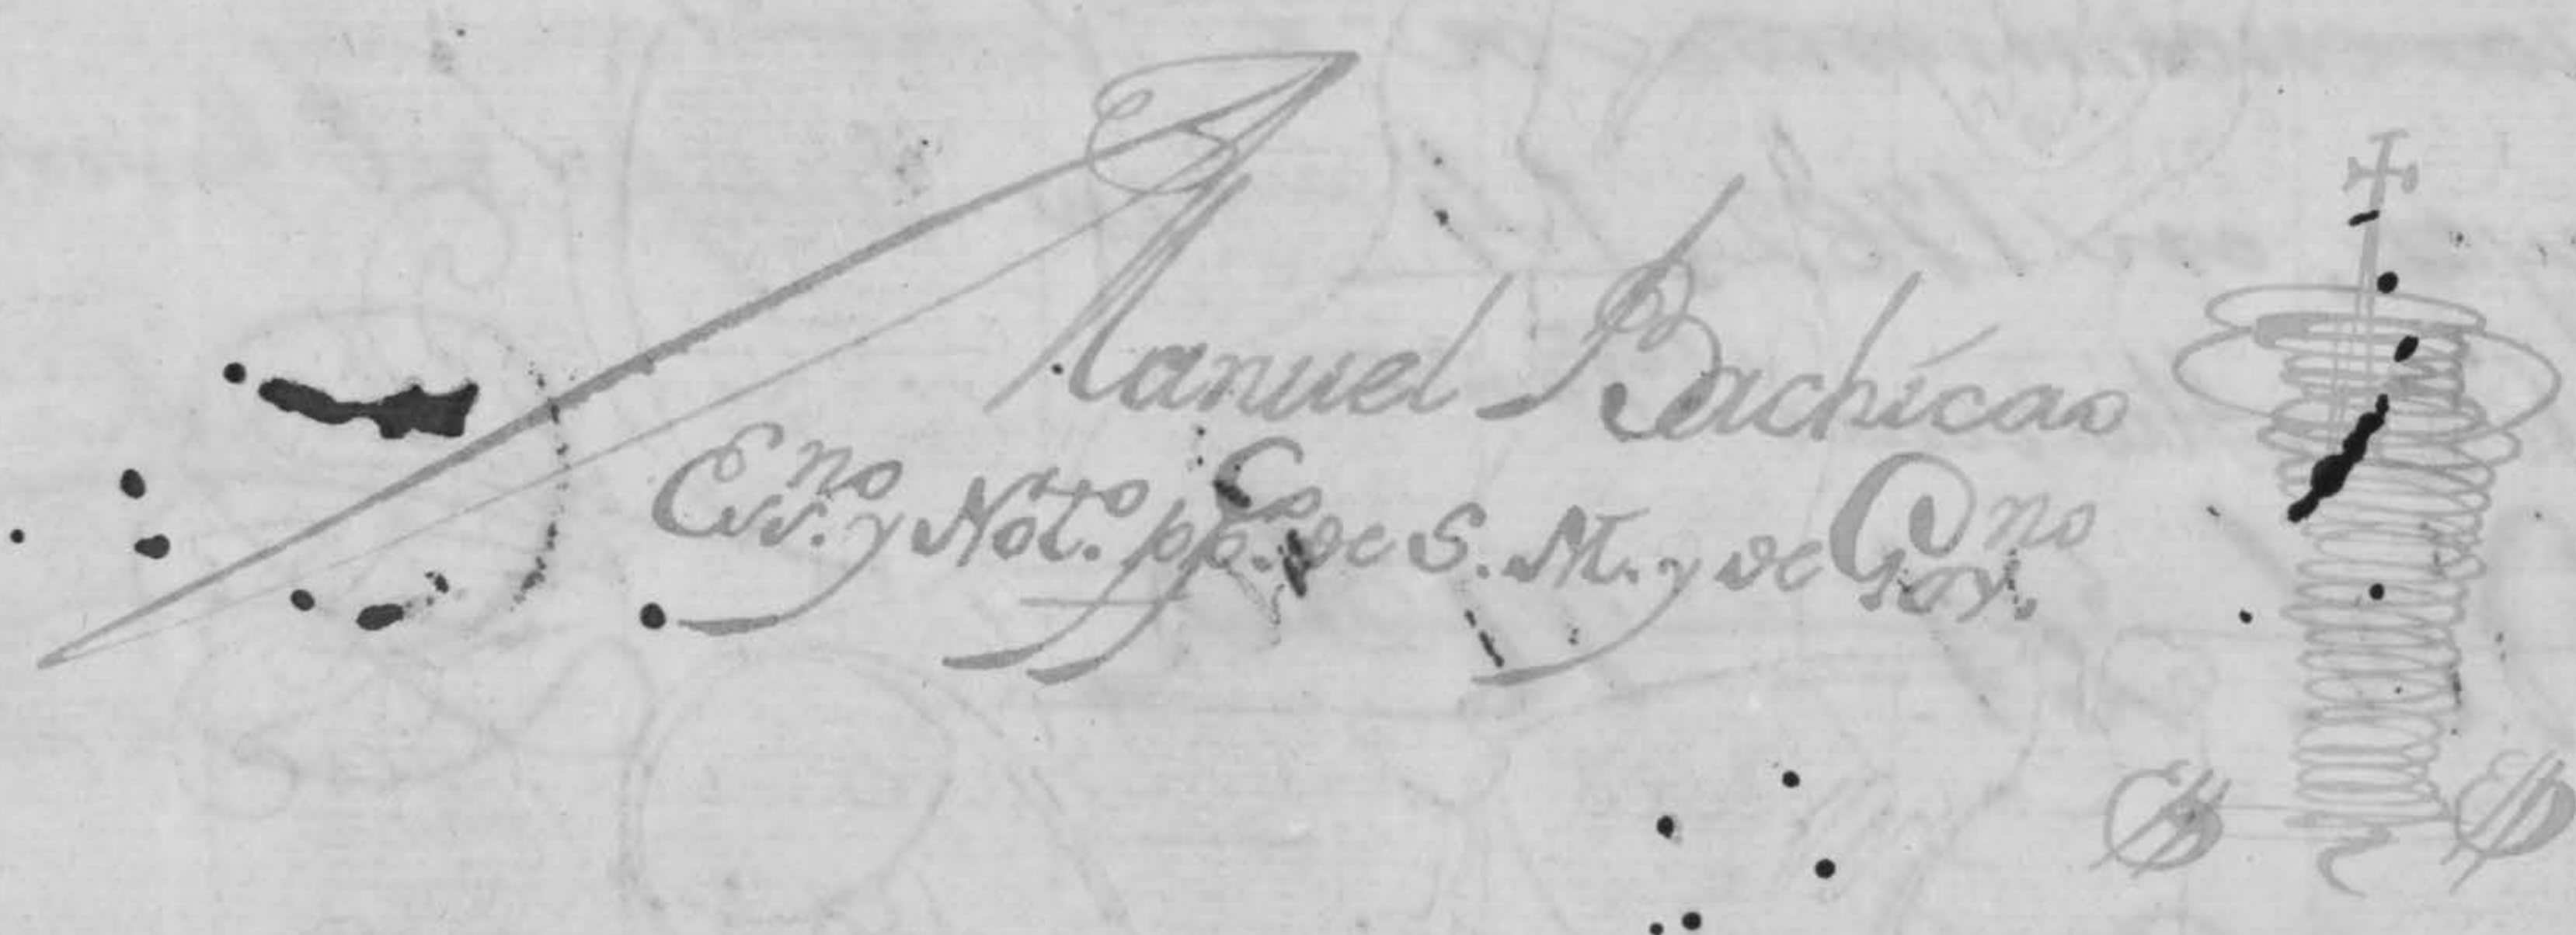 Manuel Bachicao
Ess.no y Not.rio pp.co de S. M. y de Gov.no